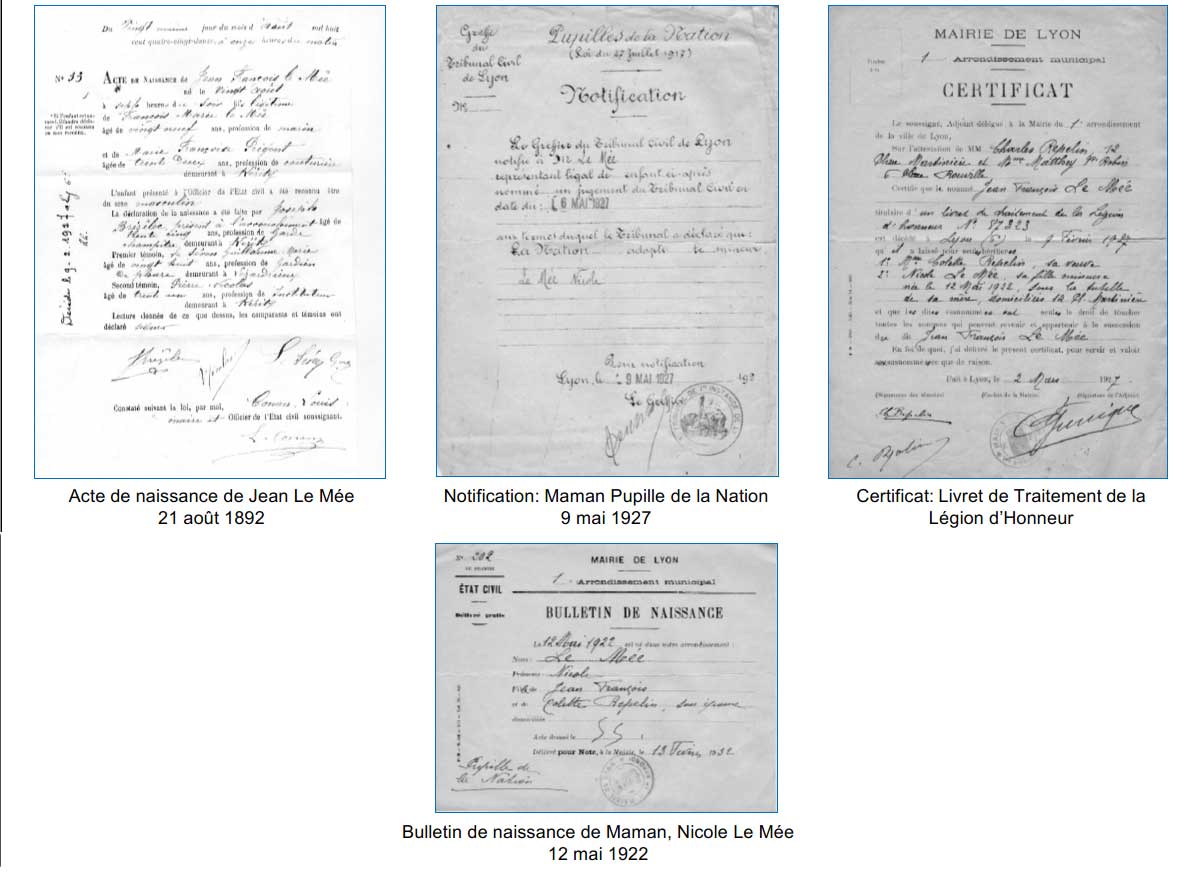 Du vingt jour du mois d'août mil huit
cent quatre-vingt-douze, à onze heures du matin
N° 33
ACTE DE NAISSANCE de Jean François le Mée
né le vingt août
à sept heures du soir fils légitime
de François Marie le Mée
âgé de vingt neuf ans, profession de marin
et de Marie Françoise
âgée de trente deux ans, profession de couturière
demeurant à Kérity
L'enfant présenté à l'Officier de l'État civil a été reconnu être
du sexe masculin
La déclaration de la naissance a été faite par Joseph
présent à l'accouchement âgé de
trente cinq ans, profession de garde
champêtre demeurant à Kérity
Premier témoin, Guillaume Marie
âgé de vingt huit ans, profession de gardien
de phare demeurant à
Second témoin, Pierre Nicolas
âgé de trente un ans, profession de instituteur
demeurant à Kérity
Lecture donnée de ce que dessus, les comparants et témoins ont
déclaré
Constaté suivant la loi, par moi, Louis
maire et Officier de l'État civil soussigné.
Acte de naissance de Jean Le Mée
21 août 1892
Greffe
du
Tribunal Civil
de Lyon
N°
Pupilles de la Nation
(Loi du 27 Juillet 1917)
Notification
Le Greffier du Tribunal Civil de Lyon
notifie à Le Mée
représentant légal de enfant ci-après
nommé un jugement du Tribunal Civil en
date du : 6 MAI 1927
aux termes duquel le Tribunal a déclaré que :
La Nation adopte le mineur
Le Mée Nicole
Pour notification
Lyon, le 9 MAI 1927 192
Le Greffier
Notification: Maman Pupille de la Nation
9 mai 1927
MAIRIE DE LYON
1 Arrondissement municipal
CERTIFICAT
Le soussigné, Adjoint délégué à la Mairie du 1e arrondissement
de la ville de Lyon,
Sur l'attestation de MM. Charles Repelin, 12
Place Martinière et Mme
6 Place
Certifie que le nommé Jean François Le Mée
titulaire d'un livret de traitement de la Légion
d'honneur N° 87323
est décédé à Lyon le 9 Février 1927
qu'il a laissé pour seuls héritiers
1° Mme Colette Repelin, sa veuve
2° Nicole Le Mée, sa fille mineure
née le 12 Mai 1922, sous la tutelle
de sa mère, domiciliées 12 Pl. Martinière
et que les dites ont seules le droit de toucher
toutes les sommes qui peuvent revenir et appartenir à la succession
de Jean François Le Mée
En foi de quoi, j'ai délivré le présent certificat, pour servir et valoir
ce que de raison.
Fait à Lyon, le 2 Mars 1927.
(Signatures des témoins) (Cachet de la Mairie) (Signature de l'Adjoint)
Ch Repelin
Certificat: Livret de Traitement de la
Légion d'Honneur
N° 202
ÉTAT CIVIL
Délivré gratis
MAIRIE DE LYON
1 Arrondissement municipal
BULLETIN DE NAISSANCE
Le 12 Mai 1922 est né dans notre arrondissement :
Nom : Le Mée
Prénoms Nicole
Fille de Jean François
et de Colette Repelin, son épouse
domiciliés
Acte dressé le
Délivré pour Note, à la Mairie, le 13 Février 1932
Pupille de
la Nation
Bulletin de naissance de Maman, Nicole Le Mée
12 mai 1922